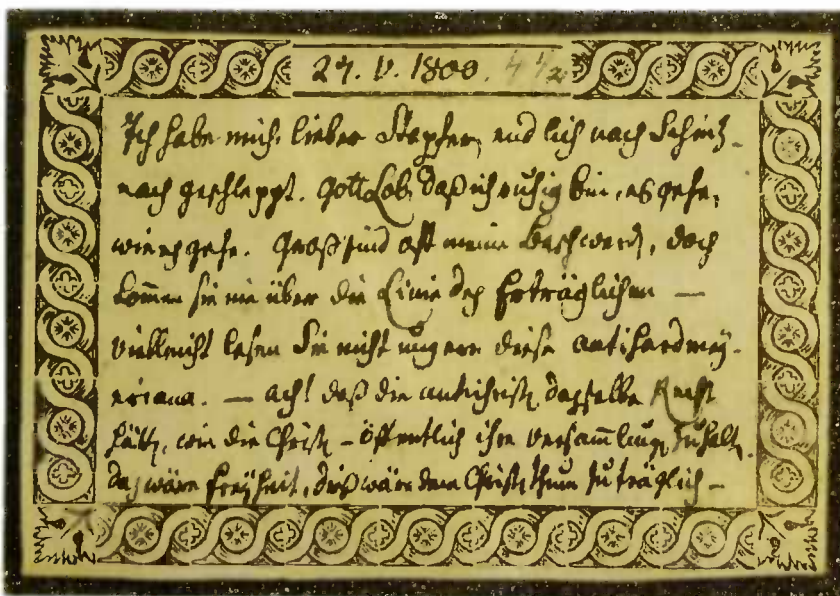 27. V. 1800. 4 1/2
Ich habe mich, lieber Stapfer, endlich nach Schinz-
nach geschleppt. Gottlob, daß ich ruhig bin, es gehe,
wie es gehe. Groß sind oft meine Beschwerden, doch
kom̄en sie nie über die Linie des Erträglichen —
Vielleicht lesen Sie nicht ungern diese antihardmey-
eriana. — ach! daß die antichristen dasselbe Recht
hätten, wie die Christen – öffentlich ihre Versam̄lungen zu halten,
das wäre Freyheit, dieß wäre dem Christenthum zuträglich –